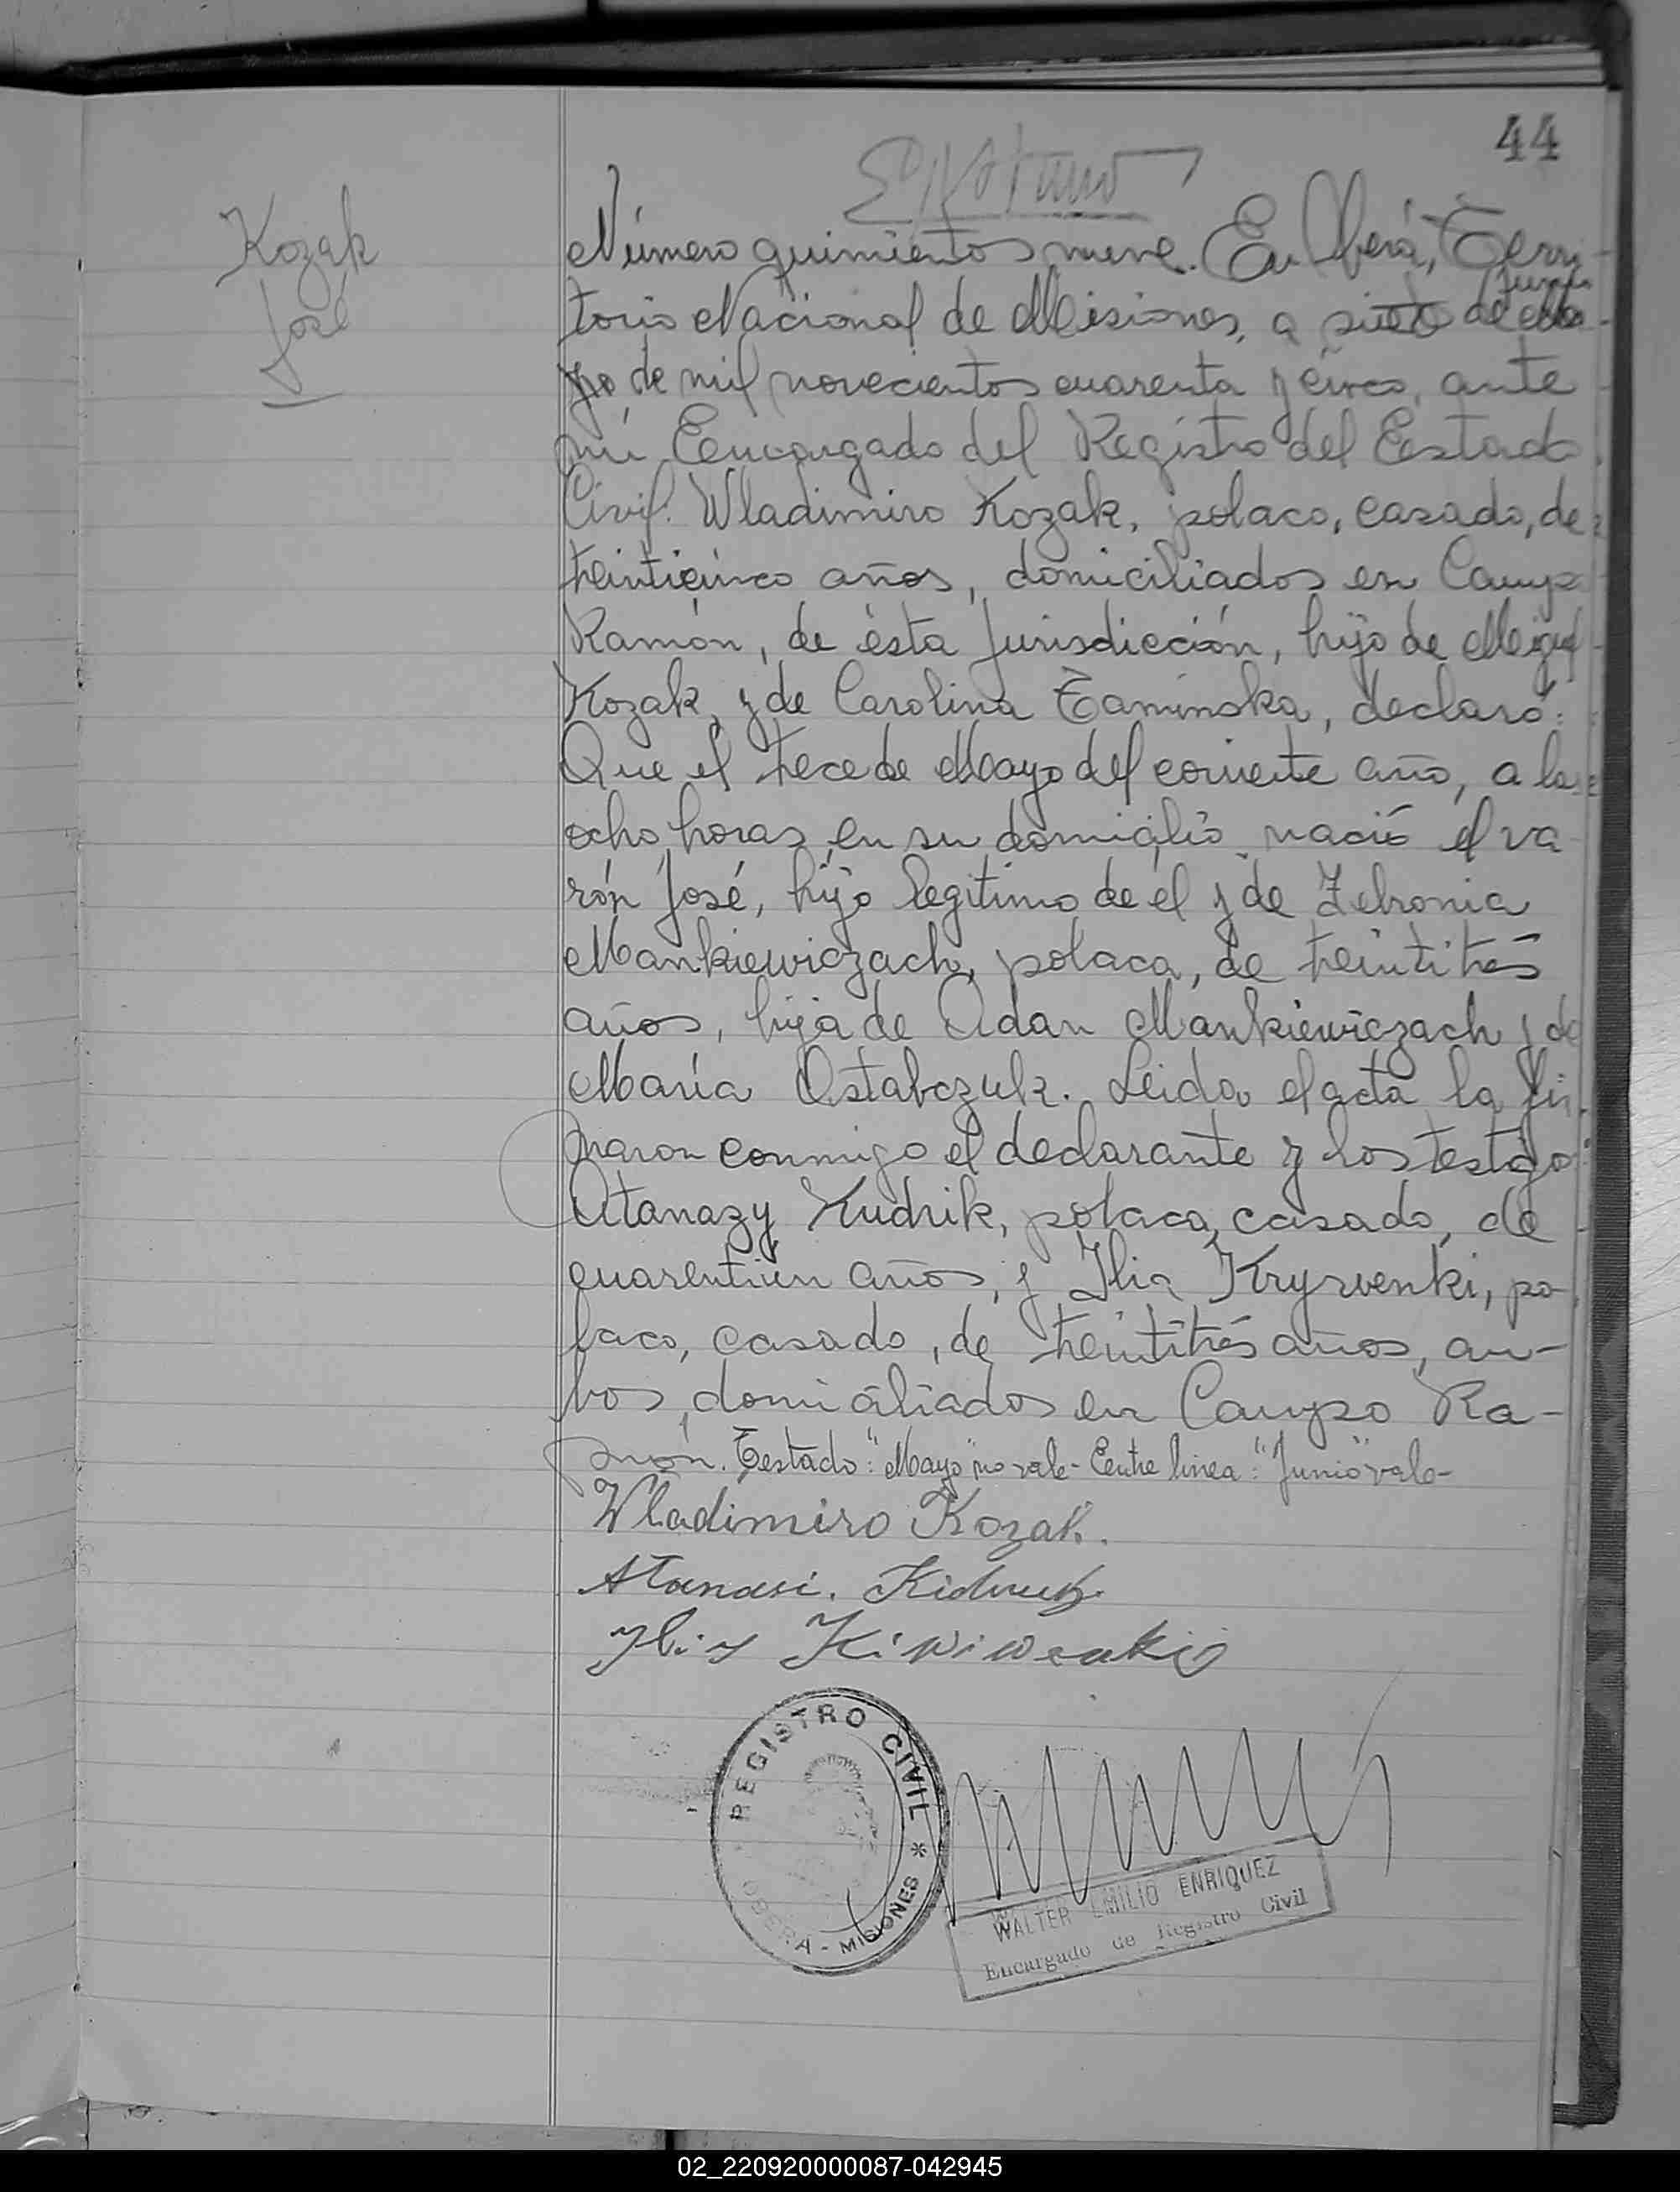 44
Kozak
José
Número quinientos nueve. En Oberá, Terri-
torio Nacional de Misiones, a siete de Ma-
Junio
yo de mil novecientos cuarenta y cinco, ante
mi Encargado del Registro del Estado
Civil. Wladimiro Kozak, polaco, casado, de
treinticinco años, domiciliados en Campo
Ramón, de ésta Jurisdicción, hijo de Miguel
Kozak y de Carolina Taminska, declaró:
Que el trece de Mayo del corriente año, a las
ocho horas, en su domicilio nació el va-
rón José, hijo legitimo de él y de Zebronia
Mankiewiczach, polaca, de treintitrés
años, hija de Adan Mankiewiczach y de
María Ostabczuk. Leida el acta la fir-
maron conmigo el declarante y los testigos
Atanazy Kudrik, polaco, casado, de
cuarentiun años, y Ilia Kryvenki, po-
laco, casado, de treintitrés años, am-
bos domiciliados en Campo Ra-
món. Testado: "Mayo" no vale - Entre linea: "Junio" vale-
Wladimiro Kozak.
Atanasi.
REGISTRO CIVIL *
OBERA - MISIONES
WALTER EMILIO ENRIQUEZ
Encargado de Registro Civil
02_220920000087-042945